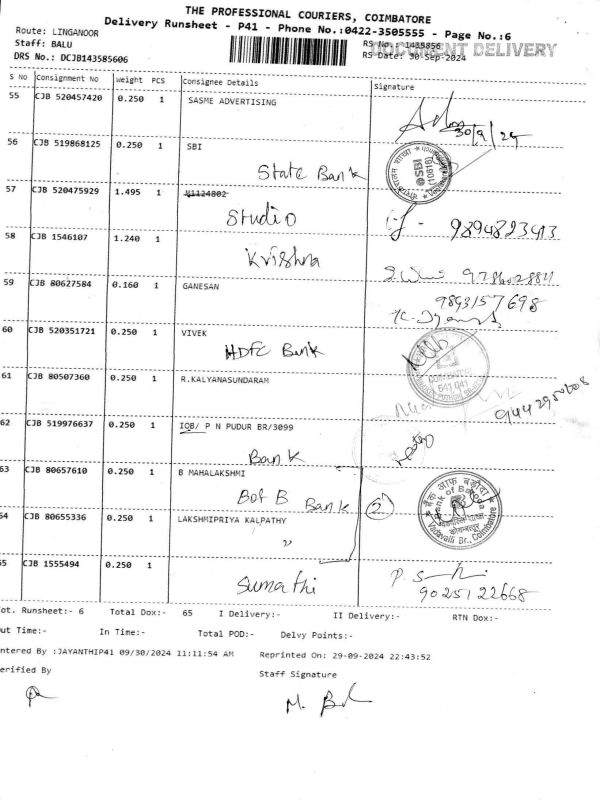 THE PROFESSIONAL COURIERS, COIMBATORE
Delivery Runsheet - P41 - Phone No.:0422-3505555 - Page No.:6
Route: LINGANOOR
Staff: BALU
DRS No.: DCJB143585606
RS No.: 1435856
DOCUMENT DELIVERY
RS Date: 30-Sep-2024
S No Consignment No Weight PCS Consignee Details Signature
55 CJB 520457420 0.250 1 SASME ADVERTISING
30/9/24
56 CJB 519868125 0.250 1 SBI
State Bank
SBI (10618)
57 CJB 520475929 1.495 1 V1124802
Studio
9894823413
58 CJB 1546107 1.240 1
Krishna
59 CJB 80627584 0.160 1 GANESAN
9843157698
60 CJB 520351721 0.250 1 VIVEK
HDFC Bank
COIMBATORE
641 041
61 CJB 80507360 0.250 1 R.KALYANASUNDARAM
62 CJB 519976637 0.250 1 IOB/ P N PUDUR BR/3099
Bank
63 CJB 80657610 0.250 1 B MAHALAKSHMI
BofB Bank
2
बैंक ऑफ़ बड़ौदा
Bank of Baroda
Vadavalli Br., Coimbatore
64 CJB 80655336 0.250 1 LAKSHMIPRIYA KALPATHY
"
65 CJB 1555494 0.250 1
Sumathi
9025122668
ot. Runsheet:- 6 Total Dox:- 65 I Delivery:- II Delivery:- RTN Dox:-
ut Time:- In Time:- Total POD:- Delvy Points:-
ntered By :JAYANTHIP41 09/30/2024 11:11:54 AM Reprinted On: 29-09-2024 22:43:52
erified By
Staff Signature